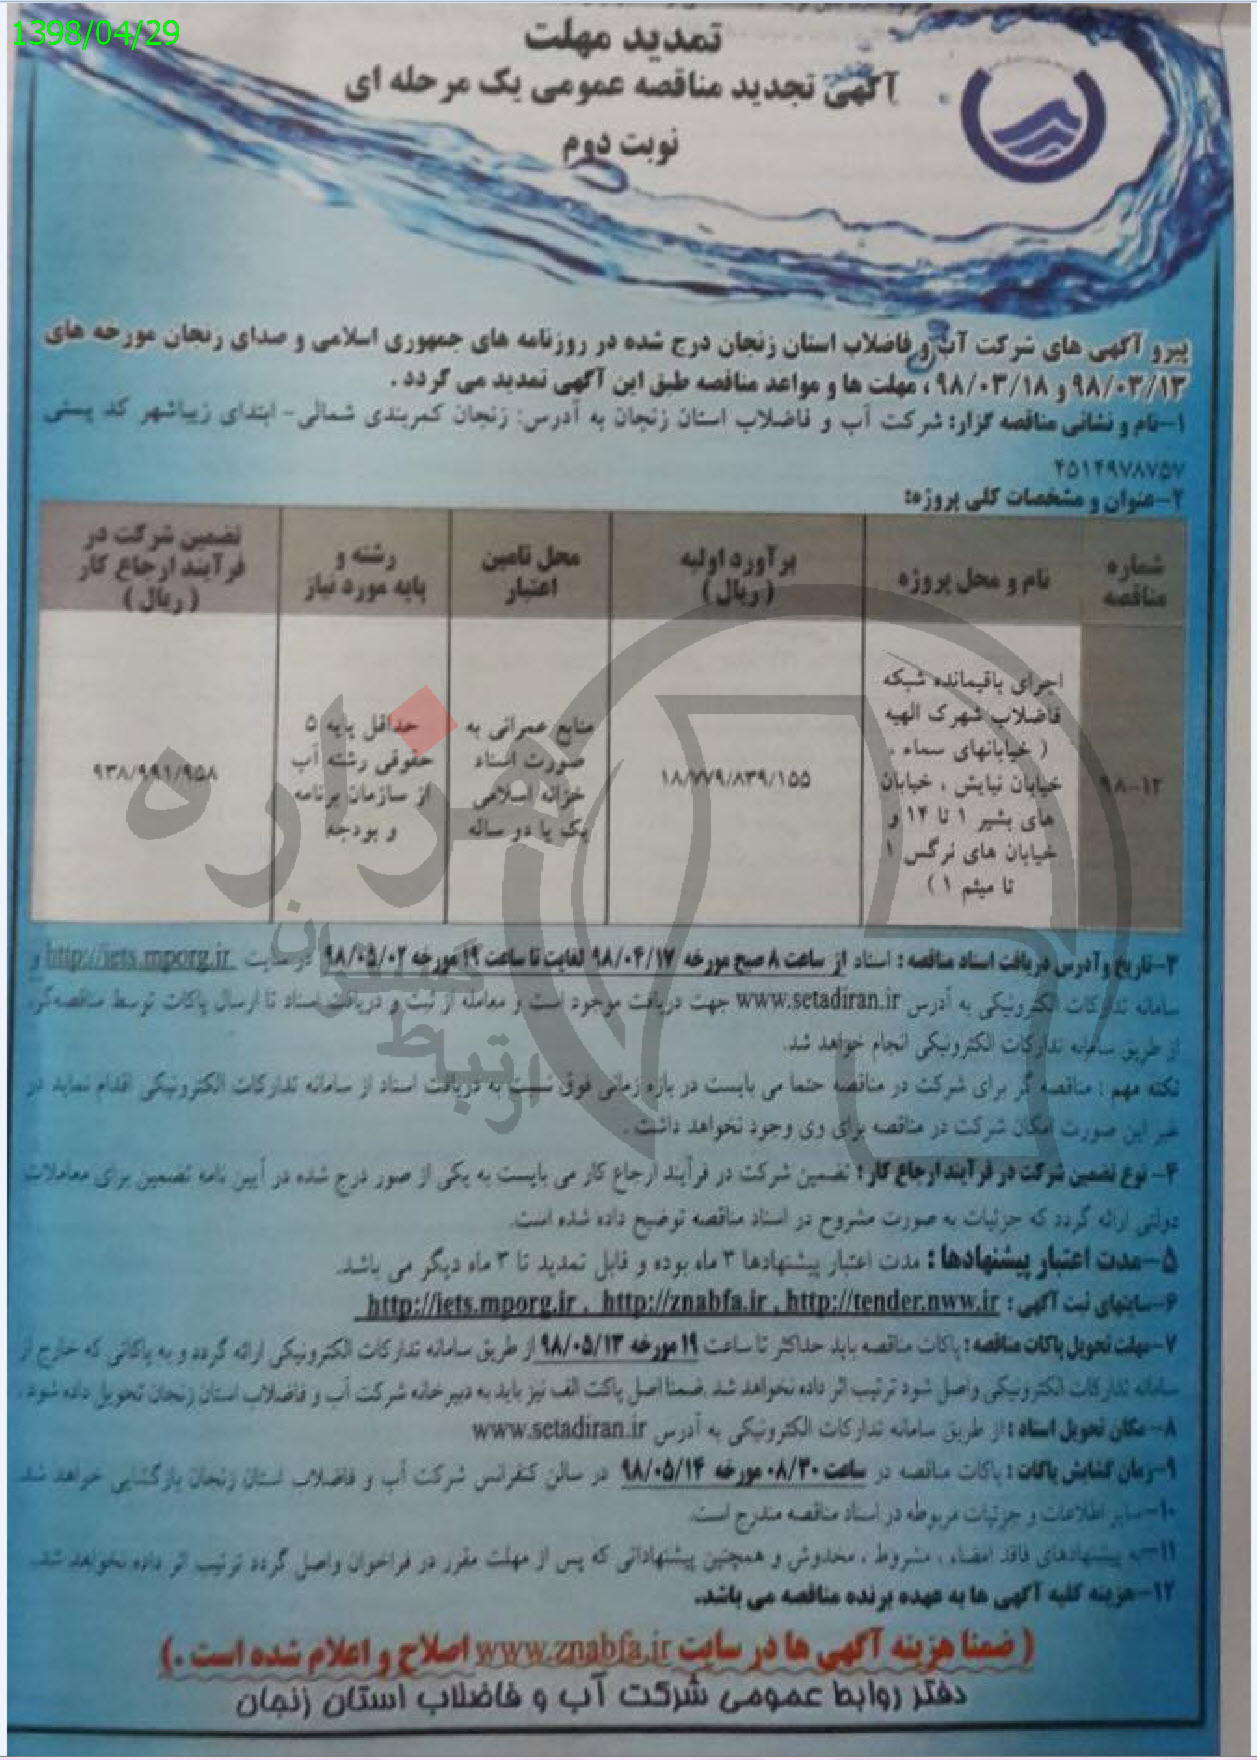 1398/04/29
تمدید مهلت
آگهی تجدید مناقصه عمومی یک مرحله ای
نوبت دوم
پیرو آگهی های شرکت آب و فاضلاب استان زنجان درج شده در روزنامه های جمهوری اسلامی و صدای زنجان مورخه های
۹۸/۰۳/۱۳ و ۹۸/۰۳/۱۸ ، مهلت ها و مواعد مناقصه طبق این آگهی تمدید می گردد .
۱-نام و نشانی مناقصه گزار: شرکت آب و فاضلاب استان زنجان به آدرس: زنجان کمربندی شمالی- ابتدای زیباشهر کد پستی
۴۵۱۴۹۷۸۷۵۷
۲-عنوان و مشخصات کلی پروژه:
شماره مناقصه
نام و محل پروژه
برآورد اولیه (ریال)
محل تامین اعتبار
رشته و پایه مورد نیاز
تضمین شرکت در فرآیند ارجاع کار (ریال)
۹۸-۱۲
اجرای باقیمانده شبکه
فاضلاب شهرک الهیه
( خیابانهای سماء ،
خیابان نیایش ، خیابان
های بشیر ۱ تا ۱۴ و
خیابان های نرگس ۱
تا میثم ۱ )
۱۸/۷۷۹/۸۳۹/۱۵۵
منابع عمرانی به
صورت اسناد
خزانه اسلامی
یک یا دو ساله
حداقل پایه ۵
حقوقی رشته آب
از سازمان برنامه
و بودجه
۹۳۸/۹۹۱/۹۵۸
۳-تاریخ و آدرس دریافت اسناد مناقصه : اسناد از ساعت ۸ صبح مورخه ۹۸/۰۴/۱۷ لغایت تا ساعت ۱۹ مورخه ۹۸/۰۵/۰۲ در سایت http://iets.mporg.ir و
سامانه تدارکات الکترونیکی به آدرس www.setadiran.ir جهت دریافت موجود است و معامله از ثبت و دریافت اسناد تا ارسال پاکات توسط مناقصه‌گر،
از طریق سامانه تدارکات الکترونیکی انجام خواهد شد.
نکته مهم : مناقصه گر برای شرکت در مناقصه حتما می بایست در بازه زمانی فوق نسبت به دریافت اسناد از سامانه تدارکات الکترونیکی اقدام نماید در
غیر این صورت امکان شرکت در مناقصه برای وی وجود نخواهد داشت .
۴- نوع تضمین شرکت در فرآیند ارجاع کار : تضمین شرکت در فرآیند ارجاع کار می بایست به یکی از صور درج شده در آیین نامه تضمین برای معاملات
دولتی ارائه گردد که جزئیات به صورت مشروح در اسناد مناقصه توضیح داده شده است.
۵-مدت اعتبار پیشنهادها : مدت اعتبار پیشنهادها ۳ ماه بوده و قابل تمدید تا ۳ ماه دیگر می باشد.
۶-سایتهای ثبت آگهی : http://iets.mporg.ir , http://znabfa.ir , http://tender.nww.ir
۷-مهلت تحویل پاکات مناقصه : پاکات مناقصه باید حداکثر تا ساعت ۱۹ مورخه ۹۸/۰۵/۱۳ از طریق سامانه تدارکات الکترونیکی ارائه گردد و به پاکاتی که خارج از
سامانه تدارکات الکترونیکی واصل شود ترتیب اثر داده نخواهد شد .ضمنا اصل پاکت الف نیز باید به دبیرخانه شرکت آب و فاضلاب استان زنجان تحویل داده شود .
۸-مکان تحویل اسناد : از طریق سامانه تدارکات الکترونیکی به آدرس www.setadiran.ir
۹-زمان گشایش پاکات : پاکات مناقصه در ساعت ۰۸/۳۰ مورخه ۹۸/۰۵/۱۴ در سالن کنفرانس شرکت آب و فاضلاب استان زنجان بازگشایی خواهد شد.
۱۰-سایر اطلاعات و جزئیات مربوطه در اسناد مناقصه مندرج است.
۱۱-به پیشنهادهای فاقد امضاء ، مشروط ، مخدوش و همچنین پیشنهاداتی که پس از مهلت مقرر در فراخوان واصل گردد ترتیب اثر داده نخواهد شد.
۱۲-هزینه کلیه آگهی ها به عهده برنده مناقصه می باشد.
( ضمنا هزینه آگهی ها در سایت www.znabfa.ir اصلاح و اعلام شده است .)
دفتر روابط عمومی شرکت آب و فاضلاب استان زنجان
هزاره
ارتباط گستران